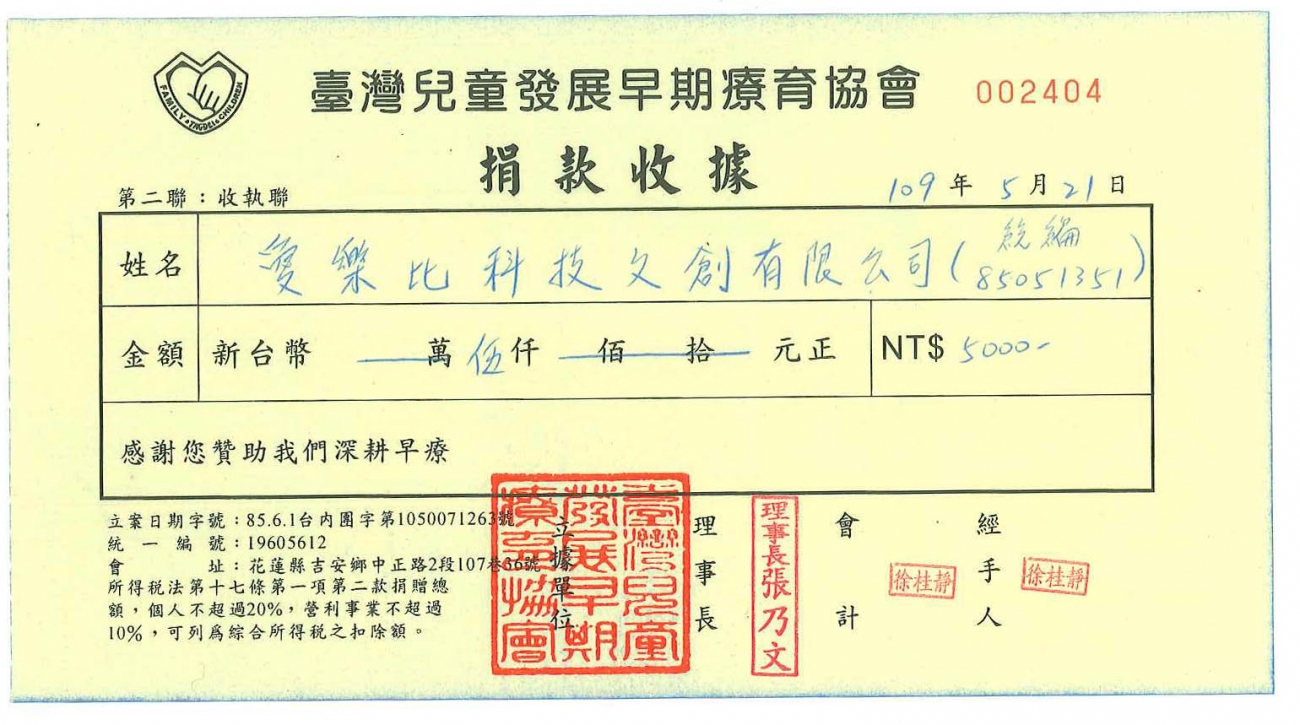 FAMILY • TAGDEI • CHILDREN
臺灣兒童發展早期療育協會 002404
捐款收據
第二聯：收執聯 109年5月21日
姓名 愛樂比科技文創有限公司(統編85051351)
金額 新台幣 萬伍仟 佰 拾 元正 NT$ 5000-
感謝您贊助我們深耕早療
立案日期字號：85.6.1台內團字第1050071263號
統一編號：19605612
會址：花蓮縣吉安鄉中正路2段107巷36號
所得稅法第十七條第一項第二款捐贈總
額，個人不超過20%，營利事業不超過
10%，可列為綜合所得稅之扣除額。
立據單位
臺灣兒童發展早期療育協會
理事長
理事長張乃文
會計
徐桂靜
經手人
徐桂靜